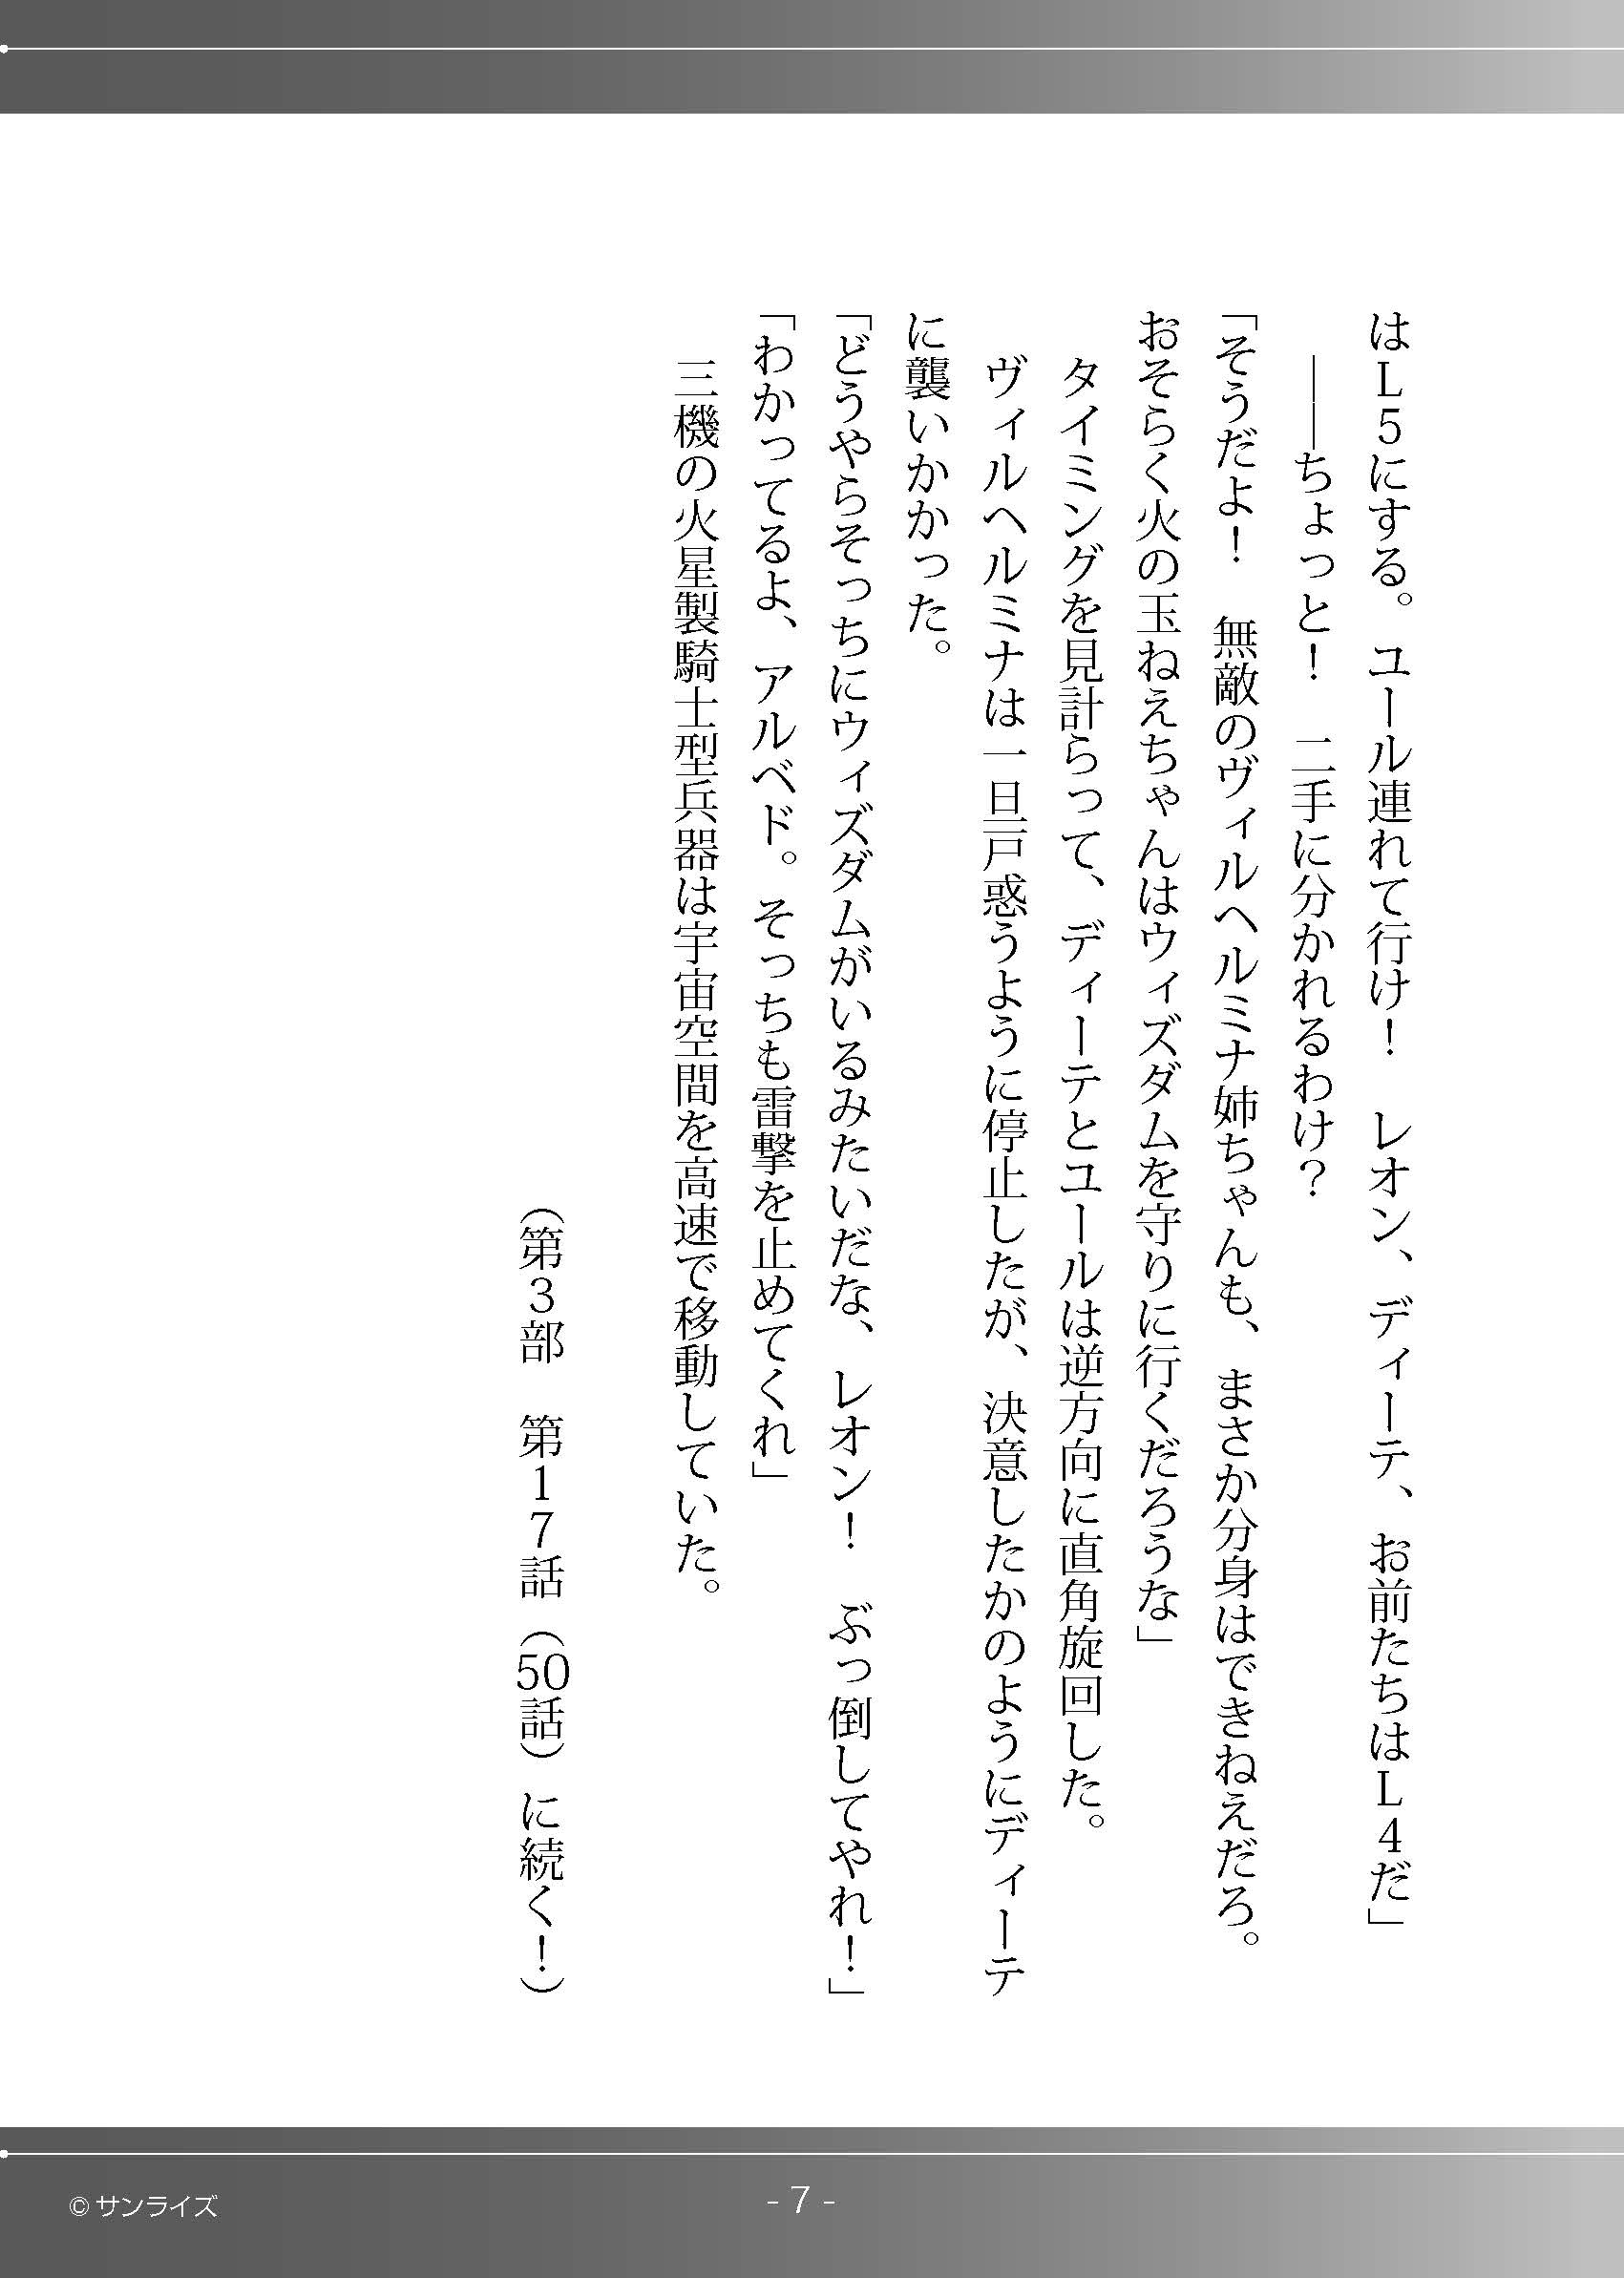 はＬ５にする。ユール連れて行け！　レオン、ディーテ、お前たちはＬ４だ」
　――ちょっと！　二手に分かれるわけ？
「そうだよ！　無敵のヴィルヘルミナ姉ちゃんも、まさか分身はできねえだろ。
おそらく火の玉ねえちゃんはウィズダムを守りに行くだろうな」
　タイミングを見計らって、ディーテとユールは逆方向に直角旋回した。
　ヴィルヘルミナは一旦戸惑うように停止したが、決意したかのようにディーテ
に襲いかかった。
「どうやらそっちにウィズダムがいるみたいだな、レオン！　ぶっ倒してやれ！」
「わかってるよ、アルベド。そっちも雷撃を止めてくれ」
　三機の火星製騎士型兵器は宇宙空間を高速で移動していた。
（第３部　第１７話（50話）に続く！）
© サンライズ
- 7 -